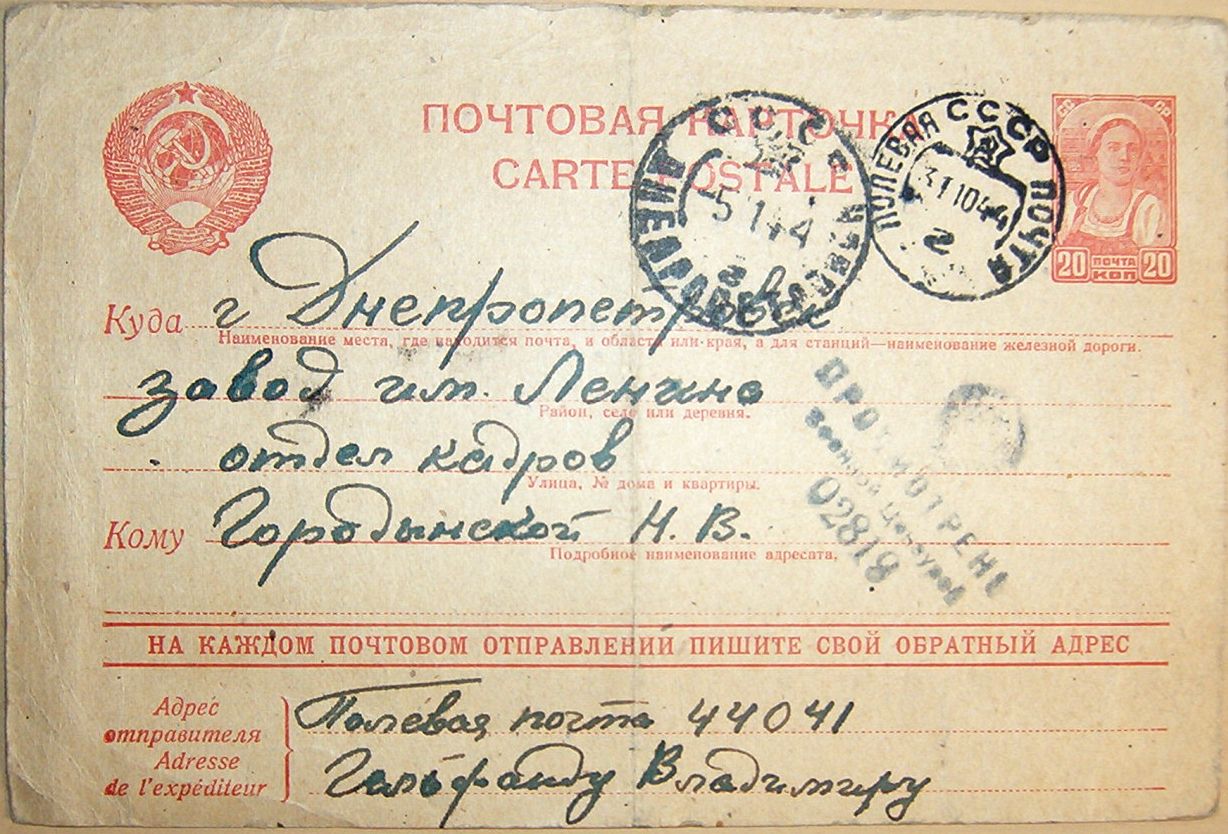 ПОЧТОВАЯ КАРТОЧКА
CARTE POSTALE
СССР
5 1 44
2
ПОЛЕВАЯ СССР ПОЧТА
31 10 44
2
СС СР
20 ПОЧТА КОП 20
Куда г Днепропетровск
Наименование места, где находится почта, и области или края, а для станций—наименование железной дороги.
завод им. Ленина
Район, село или деревня.
отдел кадров
Улица, № дома и квартиры.
Кому Городынской Н. В.
Подробное наименование адресата.
ПРОСМОТРЕНО
Военной Цензурой
02818
НА КАЖДОМ ПОЧТОВОМ ОТПРАВЛЕНИИ ПИШИТЕ СВОЙ ОБРАТНЫЙ АДРЕС
Адрес отправителя
Adresse de l'expéditeur
Полевая почта 44041
Гельфанду Владимиру